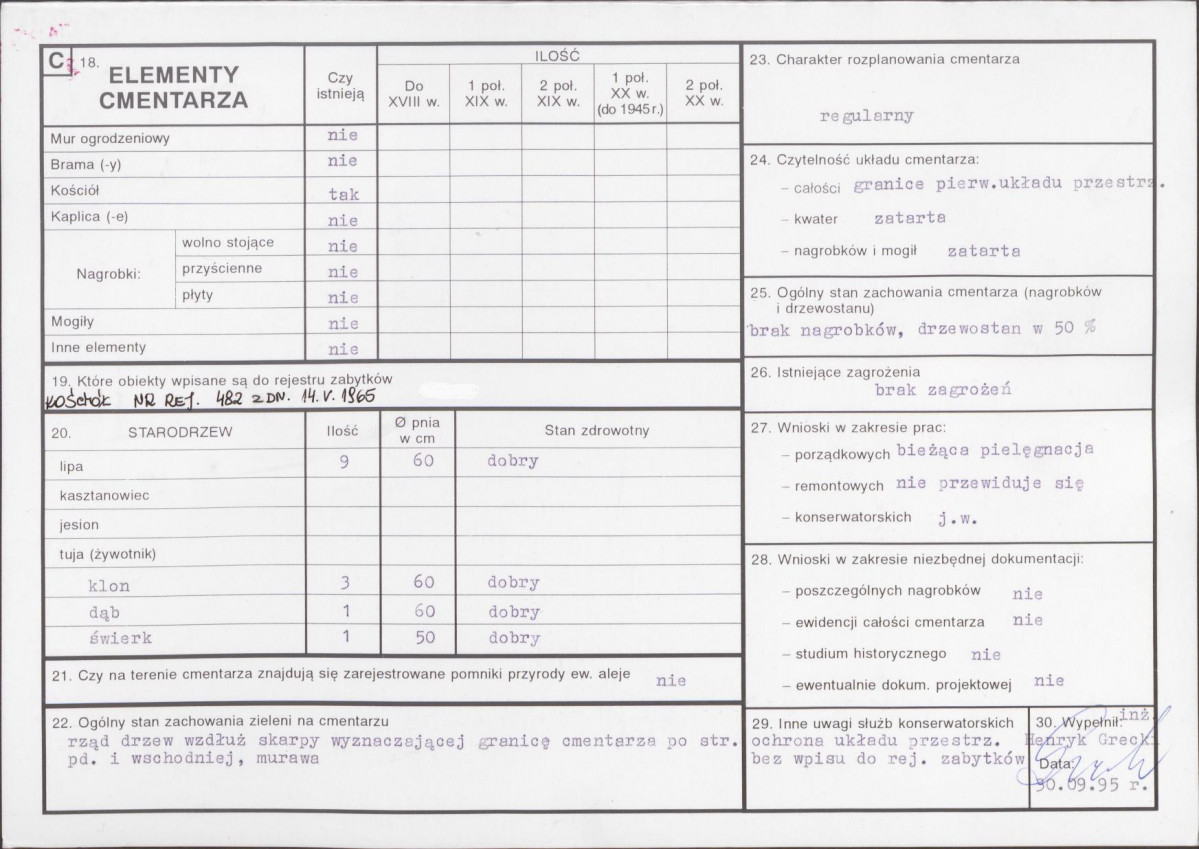 C 18.
ELEMENTY
CMENTARZA
Czy
istnieją
ILOŚĆ
Do
XVIII w.
1 poł.
XIX w.
2 poł.
XIX w.
1 poł.
XX w.
(do 1945 r.)
2 poł.
XX w.
Mur ogrodzeniowy nie
Brama (-y) nie
Kościół tak
Kaplica (-e) nie
Nagrobki:
wolno stojące nie
przyścienne nie
płyty nie
Mogiły nie
Inne elementy nie
19. Które obiekty wpisane są do rejestru zabytków
KOŚCIÓŁ NR REJ. 482 Z DN. 14.V.1965
20. STARODRZEW Ilość Ø pnia
w cm
Stan zdrowotny
lipa 9 60 dobry
kasztanowiec
jesion
tuja (żywotnik)
klon 3 60 dobry
dąb 1 60 dobry
świerk 1 50 dobry
21. Czy na terenie cmentarza znajdują się zarejestrowane pomniki przyrody ew. aleje nie
22. Ogólny stan zachowania zieleni na cmentarzu
rząd drzew wzdłuż skarpy wyznaczającej granicę cmentarza po str.
pd. i wschodniej, murawa
23. Charakter rozplanowania cmentarza
regularny
24. Czytelność układu cmentarza:
– całości granice pierw.układu przestrz.
– kwater zatarta
– nagrobków i mogił zatarta
25. Ogólny stan zachowania cmentarza (nagrobków
i drzewostanu)
brak nagrobków, drzewostan w 50 %
26. Istniejące zagrożenia
brak zagrożeń
27. Wnioski w zakresie prac:
– porządkowych bieżąca pielęgnacja
– remontowych nie przewiduje się
– konserwatorskich j.w.
28. Wnioski w zakresie niezbędnej dokumentacji:
– poszczególnych nagrobków nie
– ewidencji całości cmentarza nie
– studium historycznego nie
– ewentualnie dokum. projektowej nie
29. Inne uwagi służb konserwatorskich
ochrona układu przestrz.
bez wpisu do rej. zabytków
30. Wypełnił: inż.
Henryk Grecki
Data:
30.09.95 r.